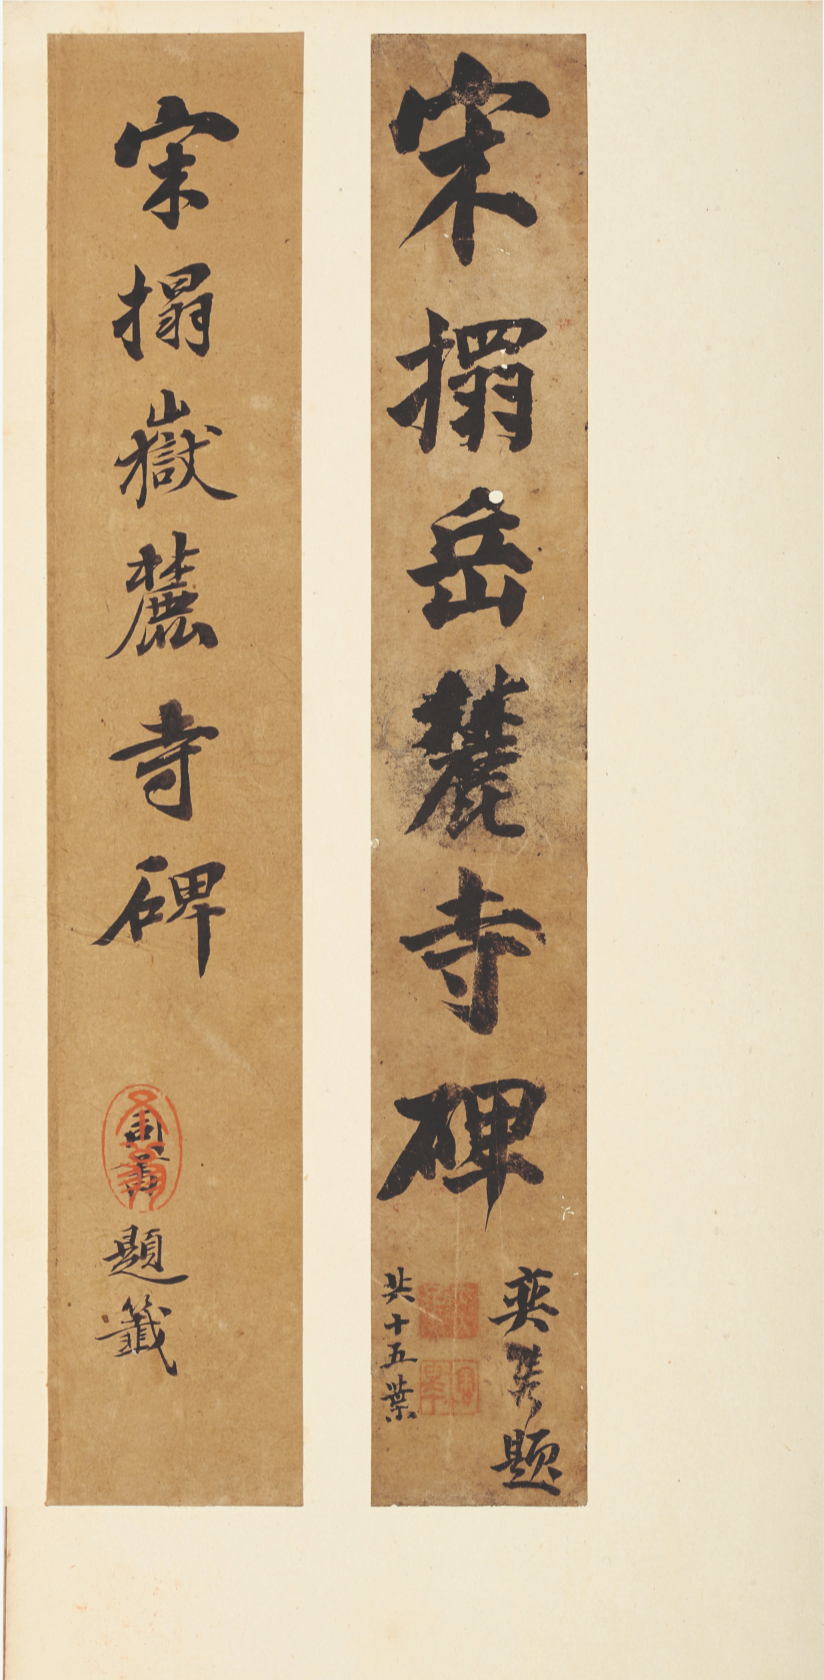 宋搨岳麓寺碑
題
共十五葉
宋搨嶽麓寺碑
題籤